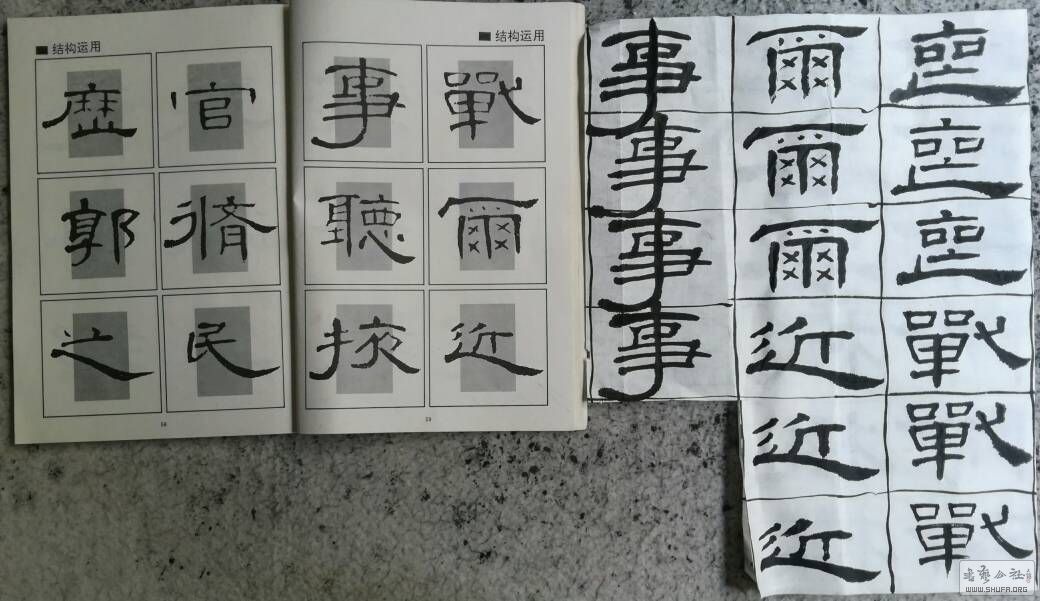 结构运用
官脩民
歷郭之
58
结构运用
戰爾近
事聽掖
59
戰戰戰
爾爾爾近近近
事事事事
书艺公社
WWW.SHUFA.ORG